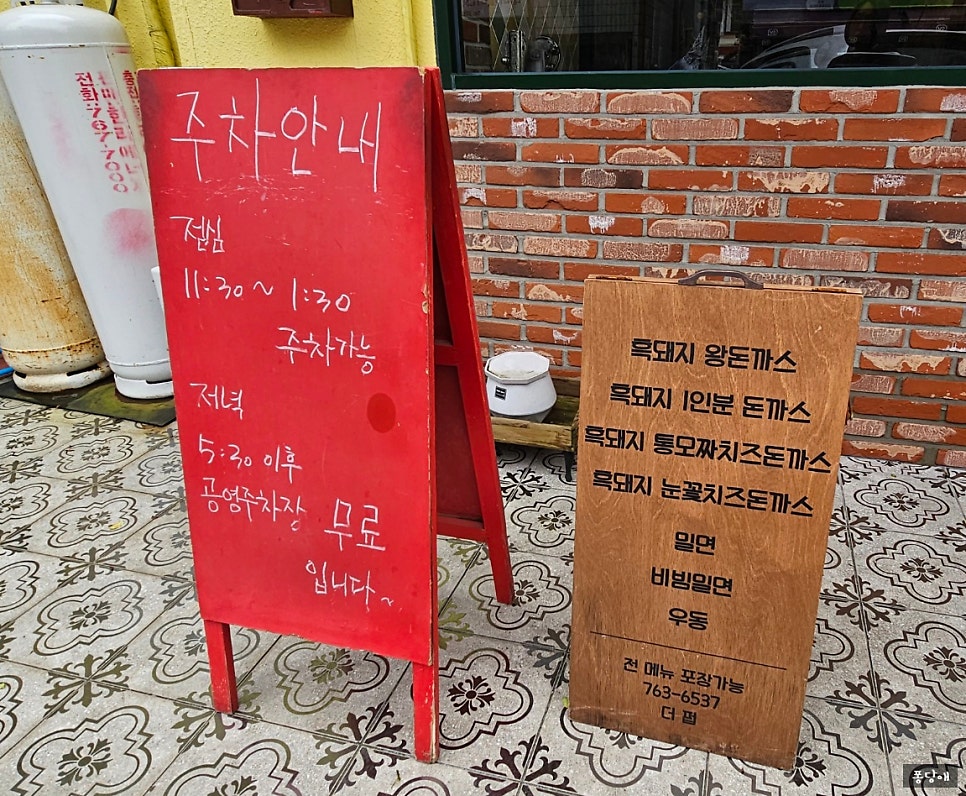 주차안내
점심
11:30 ~ 1:30
주차가능
저녁
5:30 이후
공영주차장 무료
입니다~
흑돼지 왕돈까스
흑돼지 1인분 돈까스
흑돼지 통모짜치즈돈까스
흑돼지 눈꽃치즈돈까스
밀면
비빔밀면
우동
전 메뉴 포장가능
763-6537
더 펄
퐁당애